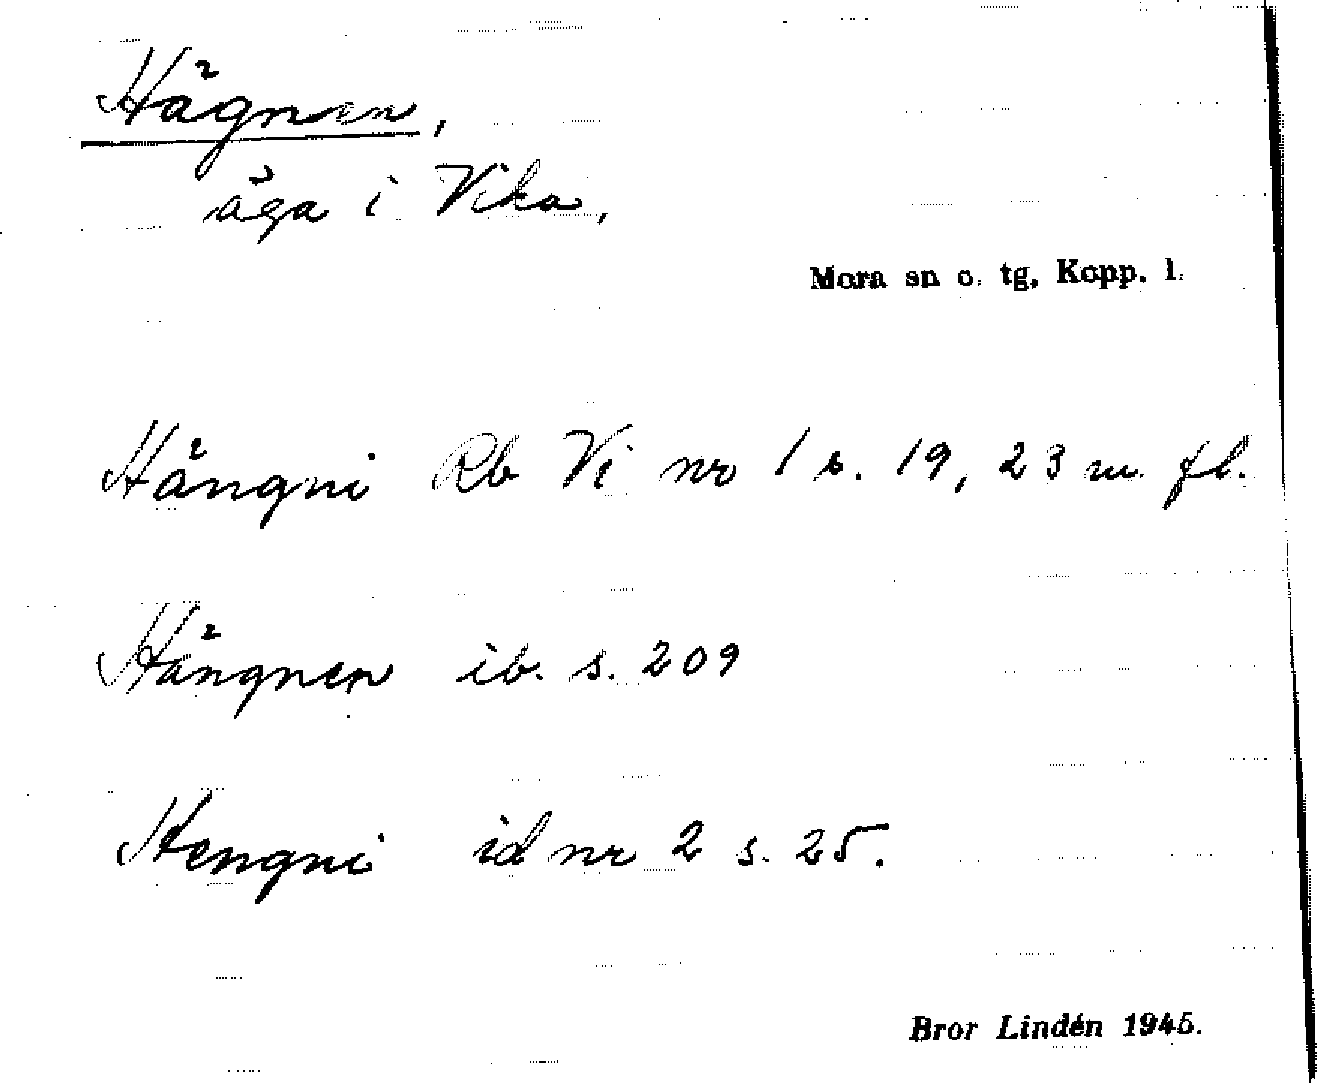 Hägnen,
äga i Vika,
Mora sn o. tg, Kopp. l.
Hängni Rb Vi nr 1 s. 19, 23 m. fl.
Hängnen ib. s. 209
Hengni id nr 2 s. 25.
Bror Lindén 1945.